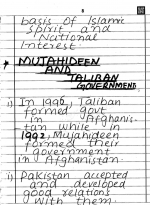 8
basis of Islamic
Spirit and
National
Interest.
* MUJAHIDEEN
AND
TALIBAN
GOVERNMENT
i) In 1996, Taliban
formed govt
in Afghanis-
tan while in
1992, Mujahideen
formed their
Government
in Afghanistan.
ii) Pakistan accepted
and developed
good relations
with them.